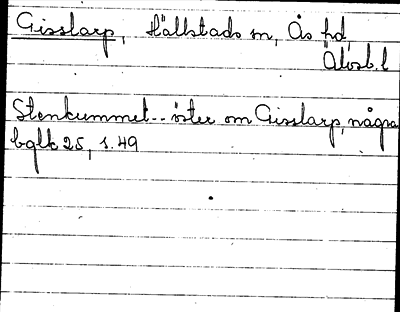 Gisslarp, Hällstads sn, Ås hd
Älvsb. l
Stenkummel.. öster om Gisslarp, några
bglk 25, s. 49